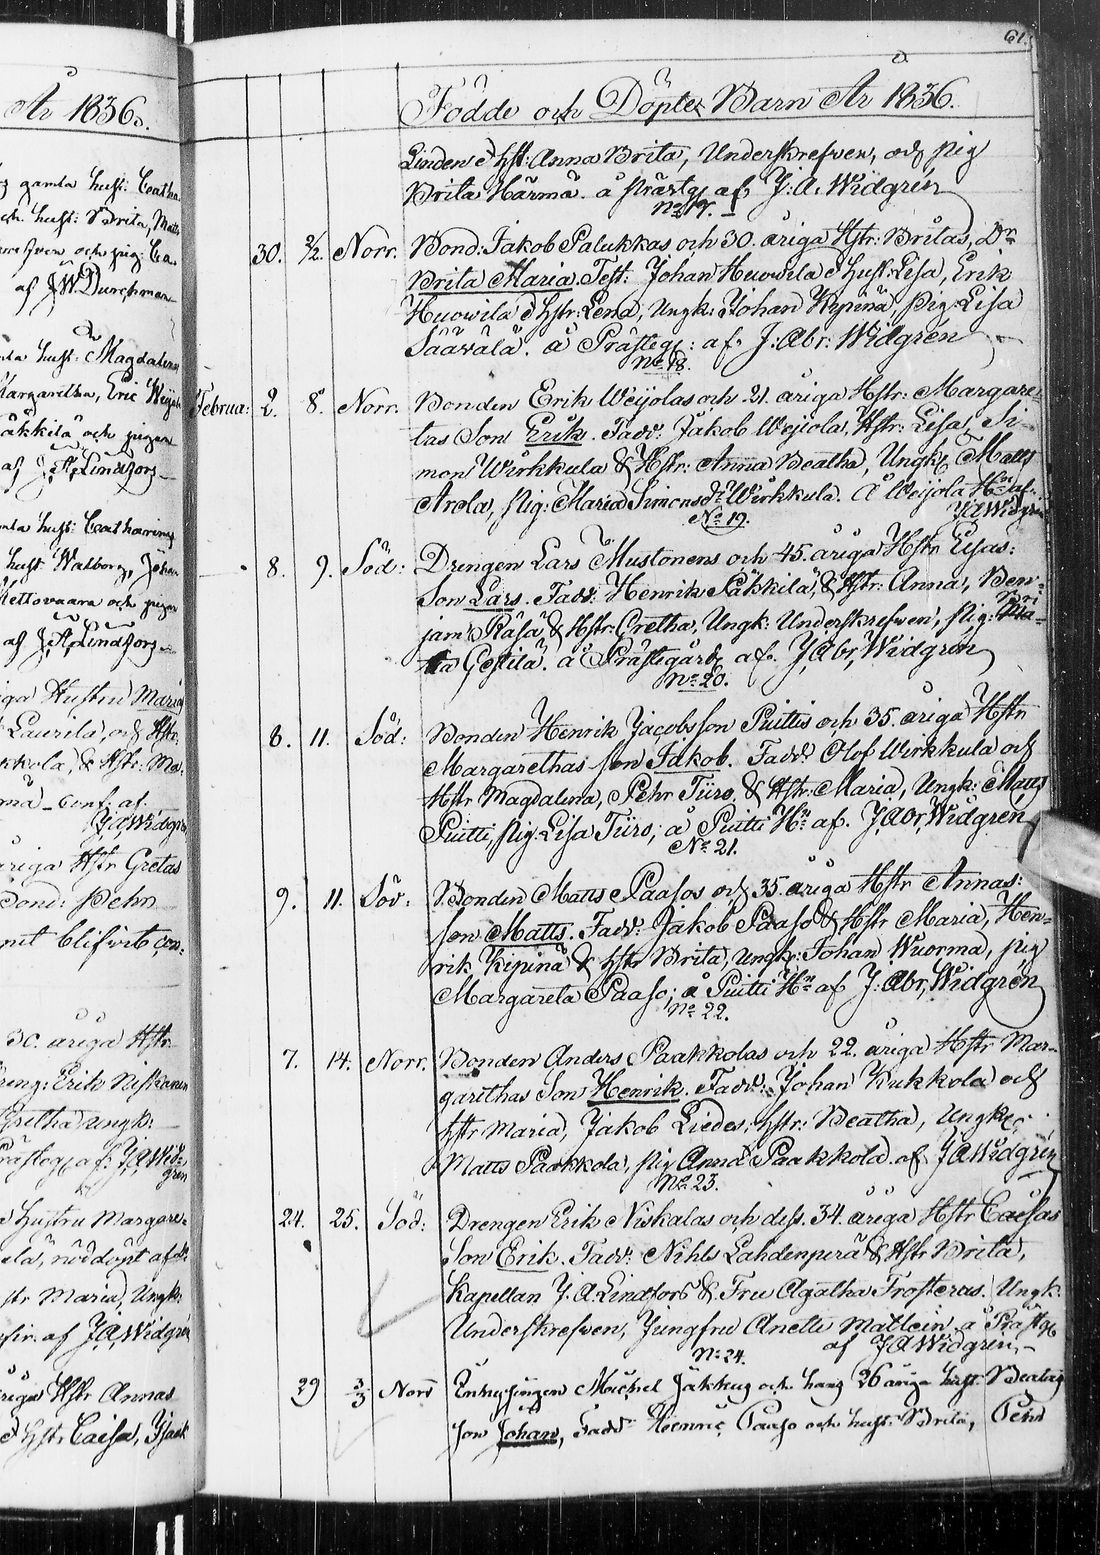 År 1836.
gamla hust: Catha
och hust: Brita, Matts
och pig: Ca.
af J.W. Durchman
hust: Magdalena
Margaretha, Eric Weijola
Päkkilä och pigan
af J. A. Lindfors
hust: Catharina
hust Walborg, Johan
Kettovaara och pigan
af J. A. Lindfors
Hustru Maria
Laurila, och Hstr:
kkola, & Hstr: Ma.
conf. af.
J A Widgrén
åriga Hstr Gretas
Bond: Pehr
blifvit con.
30. åriga Hstr
Dreng: Erik Niskanen
Gretha ungk:
Prästeg, af. J, A Wid=
grén
Hustru Margare=
nöddöpt af
Hstr Maria, Ungk:
af J A Widgrén
åriga Hstr Annas
Hstr Caisa, Isaak
61.
Födde och Döpte Barn År 1836.
Linden & Hst: Anna Brita, Underskrefven, och pig
Brita Härmä. å prästg af J: A. Widgrén
No 17.
30. 2/2. Norr. Bond: Jakob Palukkas och 30. åriga Hstr: Britas, Dr
Brita Maria. Test: Johan Huowila & hust: Lisa, Erik
Huowila & hstr: Lena, Ungk: Johan Kipinä, pig: Lisa
Säävälä. å Prästeg: af. J: Abr: Widgrén
No 18.
Februa: 2. 8. Norr. Bonden Erik Weijolas och 21. åriga Hstr: Margare=
tas Son Erik. Fadd: Jakob Weijola, Hstr: Lisa, Si=
mon Wirkkula & Hstr: Anna Beatha, Ungk: Matts
Arola, pig: Maria Simonsdr Wirkkula. å Weijola Hn af.
J A Widgrén
No 19.
8. 9. Söd: Drengen Lars Mustonens och 45. åriga Hstr Lisas:
Son Lars. Fadd: Henrik Päkkilä, & Hstr: Anna, Ben=
jam: Räsä & Hstr: Gretha, Ungk: Underskrefven, pig:
å Prästegård af. J Abr, Widgrén
No 20.
8. 11. Söd: Bonden Henrik Jacobsson Puittis och 35. åriga Hstr
Margarethas son Jakob. Fadd: Olof Wirkkula och
Hstr Magdalena, Pehr Tiiro, & Hstr: Maria, Ungk: Matts
Puitti, pig: Lisa Tiiro, å Puitti Hn af. J, Abr, Widgrén,
No 21.
9. 11. Söd: Bonden Matts Paasos och 35 åriga Hstr Annas:
son Matts. Fadd: Jakob Paaso & Hstr Maria, Hen=
rik Kipinä & hstr Brita, ungk: Johan Wuorma, pig
Margareta Paaso; å Puitti Hn af J: Abr, Widgrén
No 22.
7. 14. Norr. Bonden Anders Paakkolas och 22. åriga Hstr Mar=
garithas Son Henrik. Fadd: Johan Kukkola och
hstr Maria, Jakob Liedes, hstr: Beatha, Ungk:
Matts Paakkola, pig Anna Paakkola. af J A Widgrén
No 23.
24. 25. Söd: Drengen Erik Niskalas och dess 34. åriga Hstr Caisas
Son Erik. Fadd: Nihls Lahdenperä & Hstr Brita,
Kapellan J. A. Lindfors & Fru Agatha Frosterus. Ungk:
Underskrefven, Jungfru Anette Matlein. å Prästg
af J A Widgrén,
No 24.
29 3/3 Norr Michel Jäkkus och hans 26 åriga hust: Beatas
son Johan, Fadd Henric Paaso och hust: Brita, Pehr